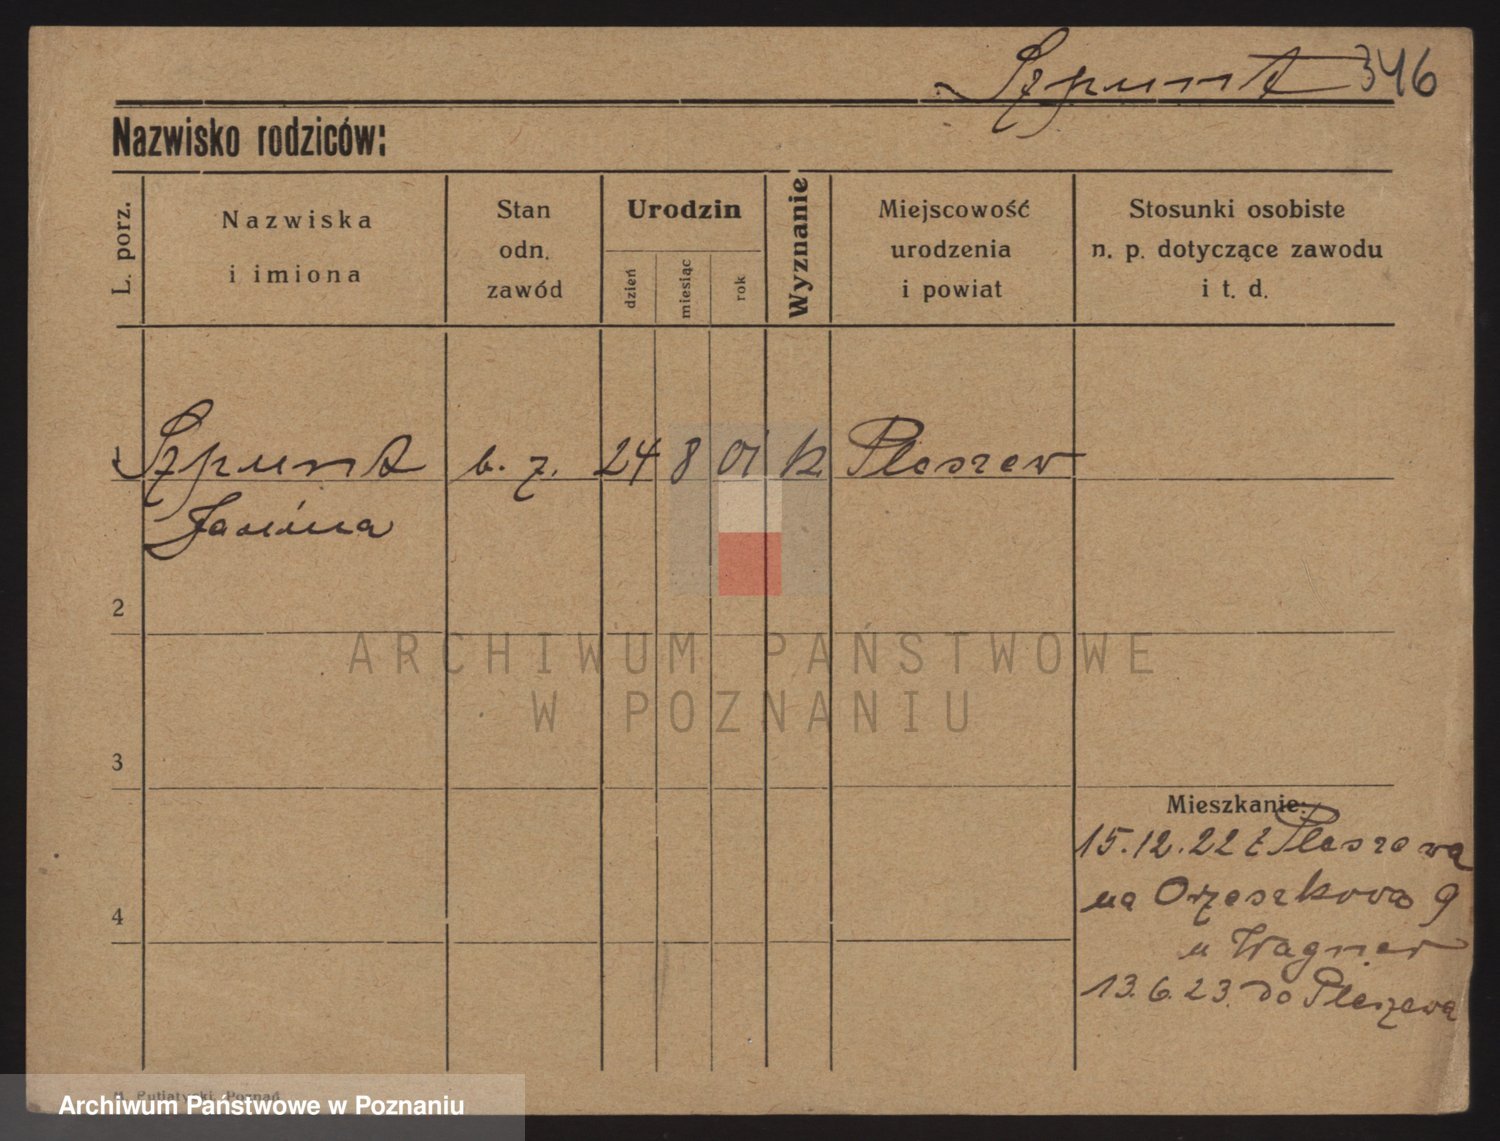 Szpunt 346
Nazwisko rodziców:
L. porz.
Nazwiska
i imiona
Stan
odn.
zawód
Urodzin
dzień
miesiąc
rok
Wyznanie
Miejscowość
urodzenia
i powiat
Stosunki osobiste
n. p. dotyczące zawodu
i t. d.
1 Szpunt b. z. 24 8 01 k. Pleszew
Janina
2
ARCHIWUM PAŃSTWOWE
W POZNANIU
3
Mieszkanie:
15.12.22 z Pleszewa
na Orzeszkowa 9
u Wagner
13.6.23. do Pleszewa
4
Poznań
Archiwum Państwowe w Poznaniu